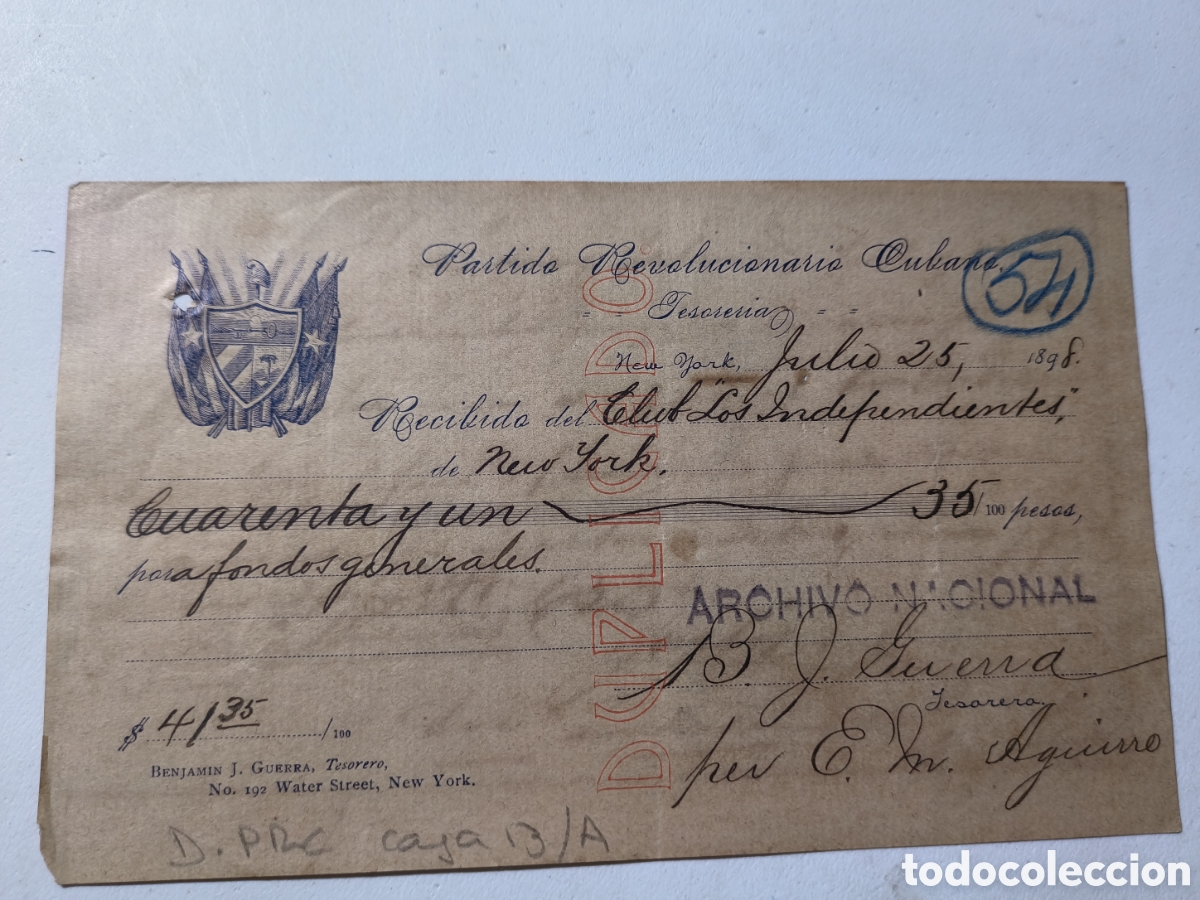 Partido Revolucionario Cubano.
54
Tesoreria
New York, Julio 25, 1898.
Recibido del Club "Los Independientes",
de New York.
Cuarenta y un 35/100 pesos,
para fondos generales.
DUPLICADO.
ARCHIVO NACIONAL
B. J. Guerra
Tesorero.
per E. M. Aguirre
$ 41 35/100
BENJAMIN J. GUERRA, Tesorero,
No. 192 Water Street, New York.
D. PRC caja 13/A
todocoleccion